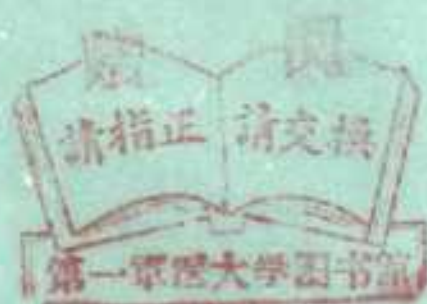 請指正 請交换
第一军医大学图书馆